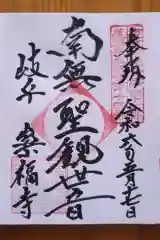 奉拝 令和六年二月七日
南無聖観世音
岐阜
崇福寺